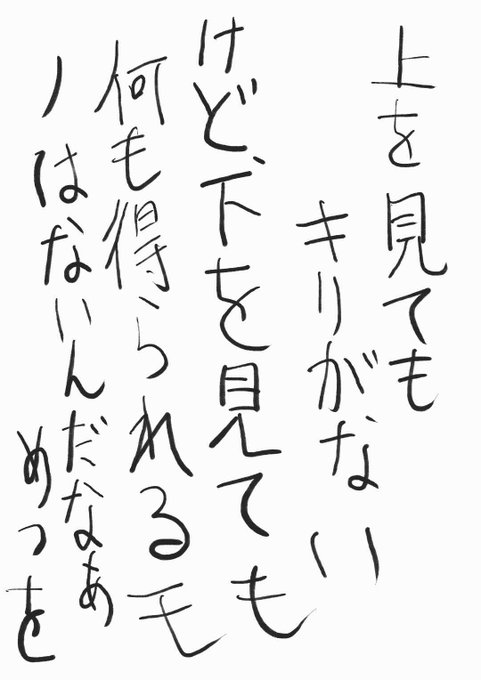 上を見ても
キリがない
けど、下を見ても
何も得られるモ
ノはないんだなぁ
めつを